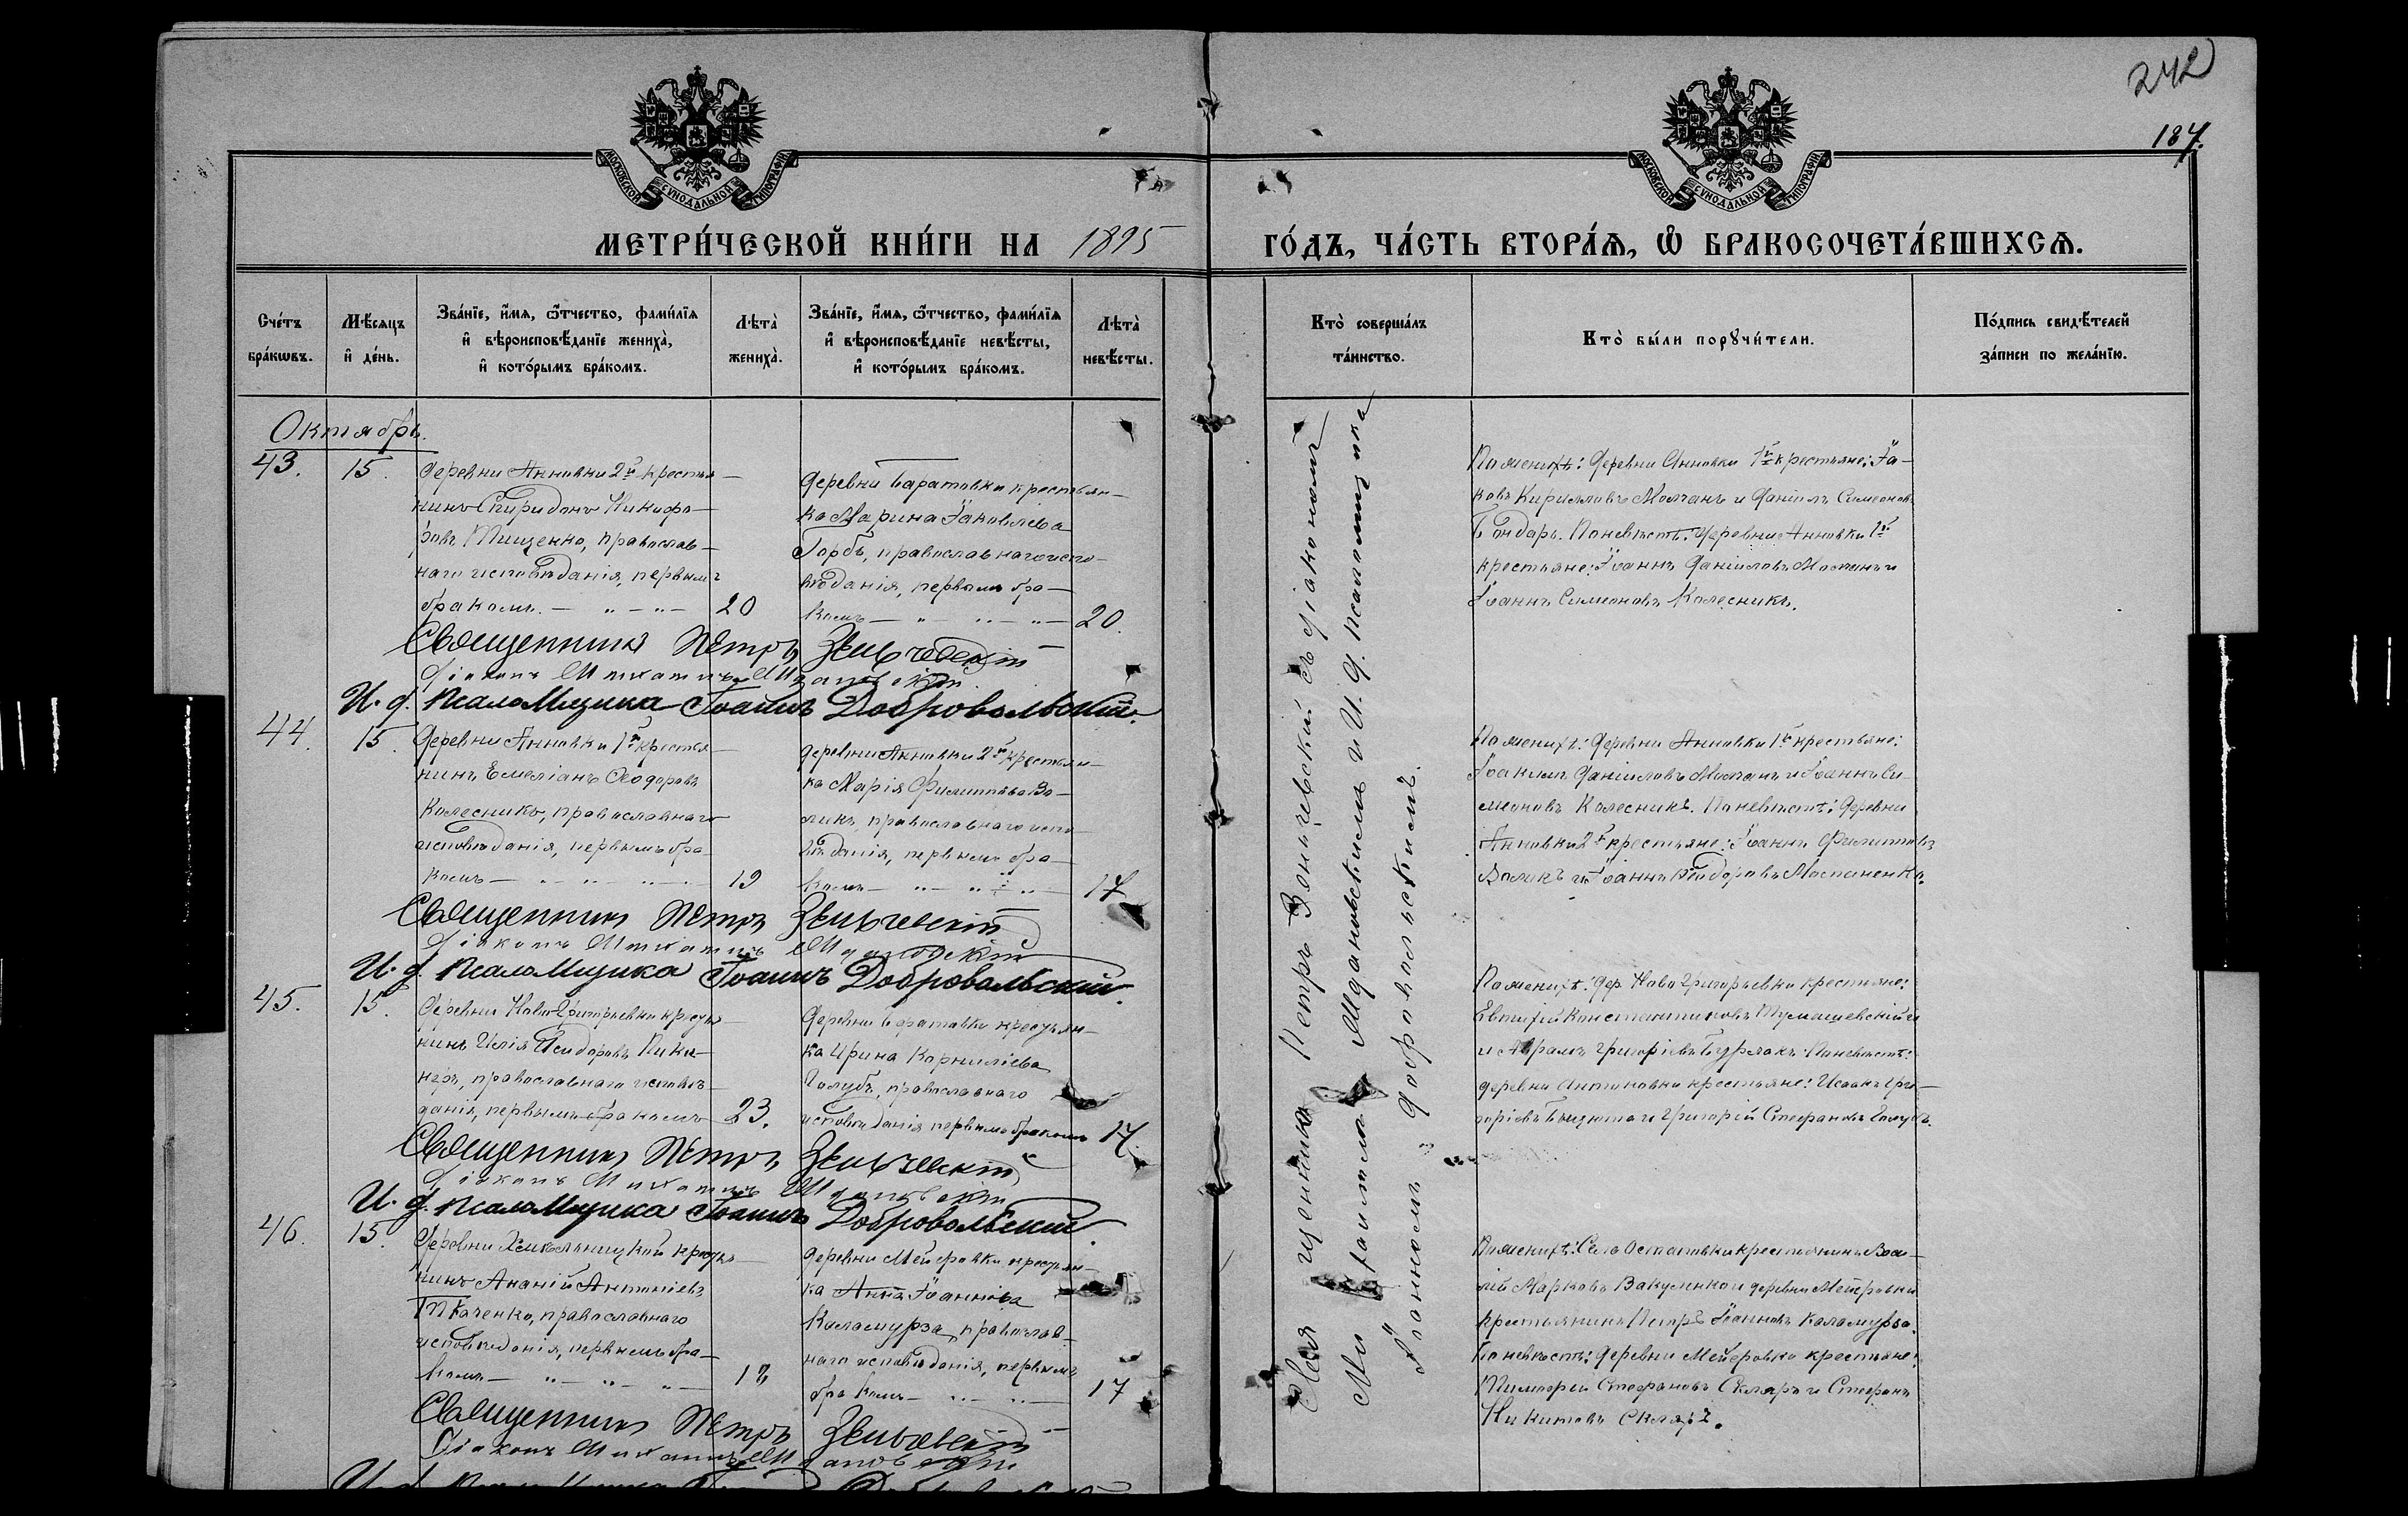 242
187.
МОСКОВСКОЙ СѴНОДАЛЬНОЙ ТИПОГРАФІИ
МОСКОВСКОЙ СѴНОДАЛЬНОЙ ТИПОГРАФІИ
МЕТРИ́ЧЕСКОЙ КНИ́ГИ НА 1895 ГО́ДЪ, ЧА́СТЬ ВТОРА́Ѧ, Ѽ БРАКОСОЧЕТА́ВШИХСѦ.
Сче́тъ бра́кѡвъ.
Мѣ́сѧцъ и҆ де́нь.
Зва́нїе, и҆́мѧ, ѻ҆́тчество, фами́лїѧ и҆ вѣроисповѣ́данїе жениха̀, и҆ кото́рымъ бра́комъ.
Лѣта̀ жениха̀.
Зва́нїе, и҆́мѧ, ѻ҆́тчество, фами́лїѧ и҆ вѣроисповѣ́данїе невѣ́сты, и҆ кото́рымъ бра́комъ.
Лѣта̀ невѣ́сты.
Кто̀ соверша́лъ та́инство.
Кто̀ бы́ли порꙋчи́тели.
По́дпись свидѣ́телей за́писи по жела́нїю.
Октябрь.
43.
15.
Деревни Анновки 2й крестья-
нинъ Спиридонъ Никифо-
ровъ Тищенко, православ-
наго исповѣданія, первымъ
бракомъ. — 20
деревни Баратовки крестьян-
ка Марина Іаковлева
Горбъ, православнаго испо-
вѣданія, первымъ бра-
комъ — 20.
По женихѣ: деревни Анновки 1й крестьяне: Іа-
ковъ Кирилловъ Молчанъ и Даніилъ Симеоновъ
Бондарь. По невѣстѣ: деревни Анновки 1й
крестьяне: Іоаннъ Даніиловъ Моспанъ и
Іоаннъ Симеоновъ Колесникъ.
Священникъ Петръ
Діаконъ Михаилъ
И. д. псаломщика Іоаннъ Добровольскій.
44.
15.
Деревни Анновки 1й крестья-
нинъ Емеліанъ Ѳеодоровъ
Колесникъ, православнаго
исповѣданія, первымъ бра-
комъ — 19
деревни Анновки 2й крестьян-
ка Марія Филиппова Во-
ликъ, православнаго испо-
вѣданія, первымъ бра-
комъ — 17
По женихѣ: деревни Анновки 1й крестьяне:
Іоакимъ Даніиловъ Моспанъ и Іоаннъ Си-
меоновъ Колесникъ. По невѣстѣ: деревни
Анновки 2й крестьяне: Іоаннъ Филипповъ
Воликъ и Іоаннъ Ѳеодоровъ Моспаненко.
Священникъ Петръ
Діаконъ Михаилъ
И. д. псаломщика Іоаннъ Добровольскій.
45.
15.
Деревни Ново-Григорьевки крестья-
нинъ Илія Исидоровъ Пики-
неръ, православнаго исповѣ-
данія, первымъ бракомъ 23.
Деревни Баратовки крестьян-
ка Ирина Корниліева
Голубъ, православнаго
исповѣданія первымъ бракомъ 17.
По женихѣ: дер. Ново Григорьевки крестьяне:
Евтихій Константиновъ Тумашевскій и
и Аврамъ Григорієвъ Бурлакъ. По невѣстѣ:
деревни Антоновки крестьяне: Исаакъ Гри-
горіевъ и Григорій Стефановъ Голубъ.
Священникъ Петръ
Діаконъ Михаилъ
И. д. псаломщика Іоаннъ Добровольскій.
46.
15.
Деревни крестья-
нинъ Ананій Антоніевъ
Ткаченко, православнаго
исповѣданія, первымъ бра-
комъ — 18
деревни Мейеровки крестьян-
ка Анна Іоаннова
Каламурза, православ-
наго исповѣданія, первымъ
бракомъ — 17
По женихѣ: Села крестьянинъ
Марковъ Вакуленко и деревни Мейеровки
крестьянинъ Петръ Іоанновъ Каламурза.
По невѣстѣ: деревни Мейеровки крестьяне:
Тимофей Стефановъ Скляръ и Стефанъ
Никитовъ Скляръ.
Священникъ Петръ
Діаконъ Михаилъ
Священникъ Петръ съ діакономъ
Михаиломъ и И. д. псаломщика
Іоанномъ Добровольскимъ.